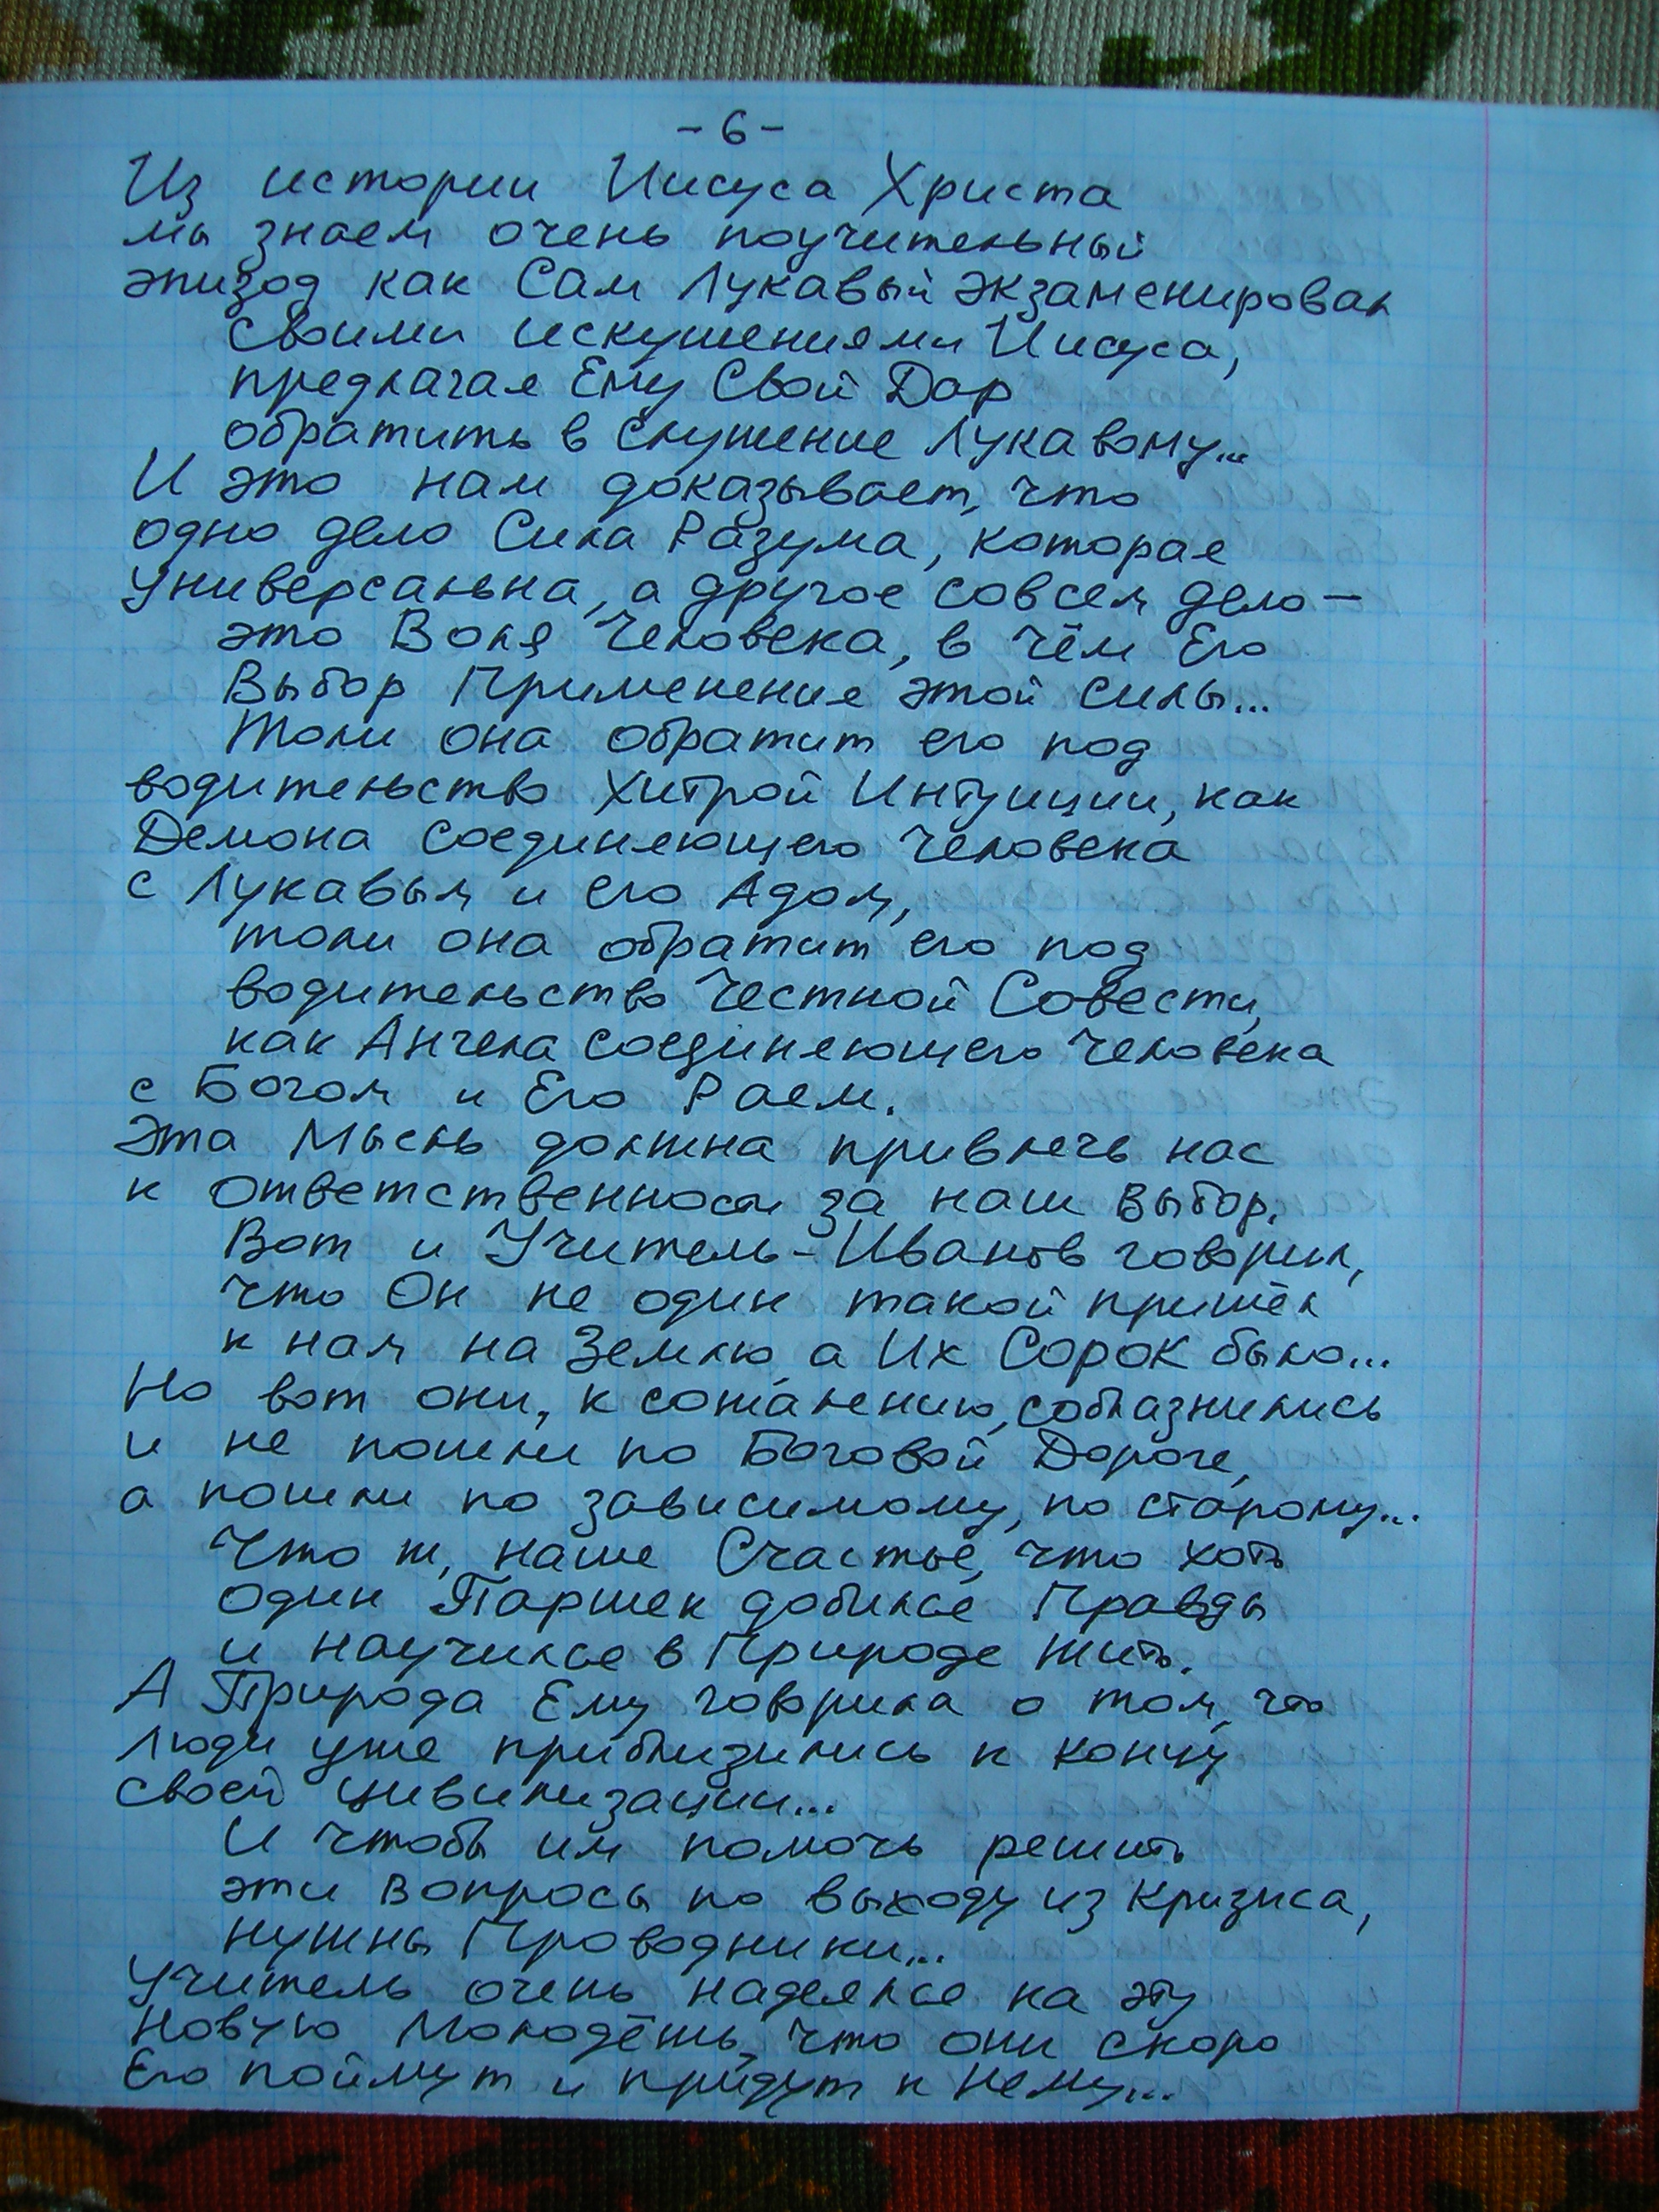 -6-
Из истории Иисуса Христа
мы знаем очень поучительный
эпизод как Сам Лукавый экзаменировал
своими искушениями Иисуса,
предлагая Ему Свой Дар
обратить в служение Лукавому...
И это нам доказывает, что
одно дело Сила Разума, которая
универсальна, а другое совсем дело —
это Воля Человека, в чём Его
Выбор Применения этой силы...
Толи она обратит его под
водительство Хитрой Интуиции, как
Демона соединяющего Человека
с Лукавым и его Адом,
толи она обратит его под
водительство Честной Совести,
как Ангела соединяющего Человека
с Богом и Его Раем.
Эта Мысль должна привлечь нас
к ответственности за наш выбор.
Вот и Учитель-Иванов говорил,
что Он не один такой пришёл
к нам на Землю, а Их Сорок было...
Но вот они, к сожалению, соблазнились
и не пошли по Боговой Дороге,
а пошли по зависимому, по старому...
Что ж, наше Счастье, что хоть
один Паршек добился Правды
и научился в Природе жить.
А Природа Ему говорила о том, что
люди уже приблизились к концу
своей цивилизации...
И чтобы им помочь решить
эти вопросы по выходу из кризиса,
нужны Проводники...
Учитель очень надеялся на эту
Новую Молодёжь, что они скоро
Его поймут и придут к Нему...